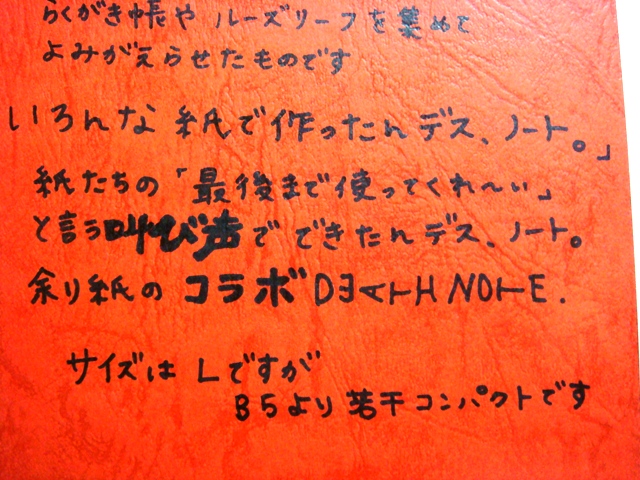 らくがき帳や ルーズリーフを集めて
よみがえらせたものです
いろんな 紙で作ったんデス、ノート。」
紙たちの「最後まで使ってくれ〜ぃ」
と言う叫び声でできたんデス、ノート。
余り紙の コラボ DEATH NOTE.
サイズは Lですが
B5より 若干コンパクトです